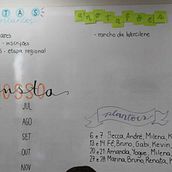 TAS
anotações
ares
- inscrições
- etapa regional
- rancho da Wercilene
JUL
AGO
SET
OUT
NOV
plantões
6 e 7 Secca, André, Milena, K
13 e 14 Fê, Bruno, Gabi, Kevin,
20 e 21 Amanda, Yaque, Milena
27 e 28 Marina, Bruno, Renata, K